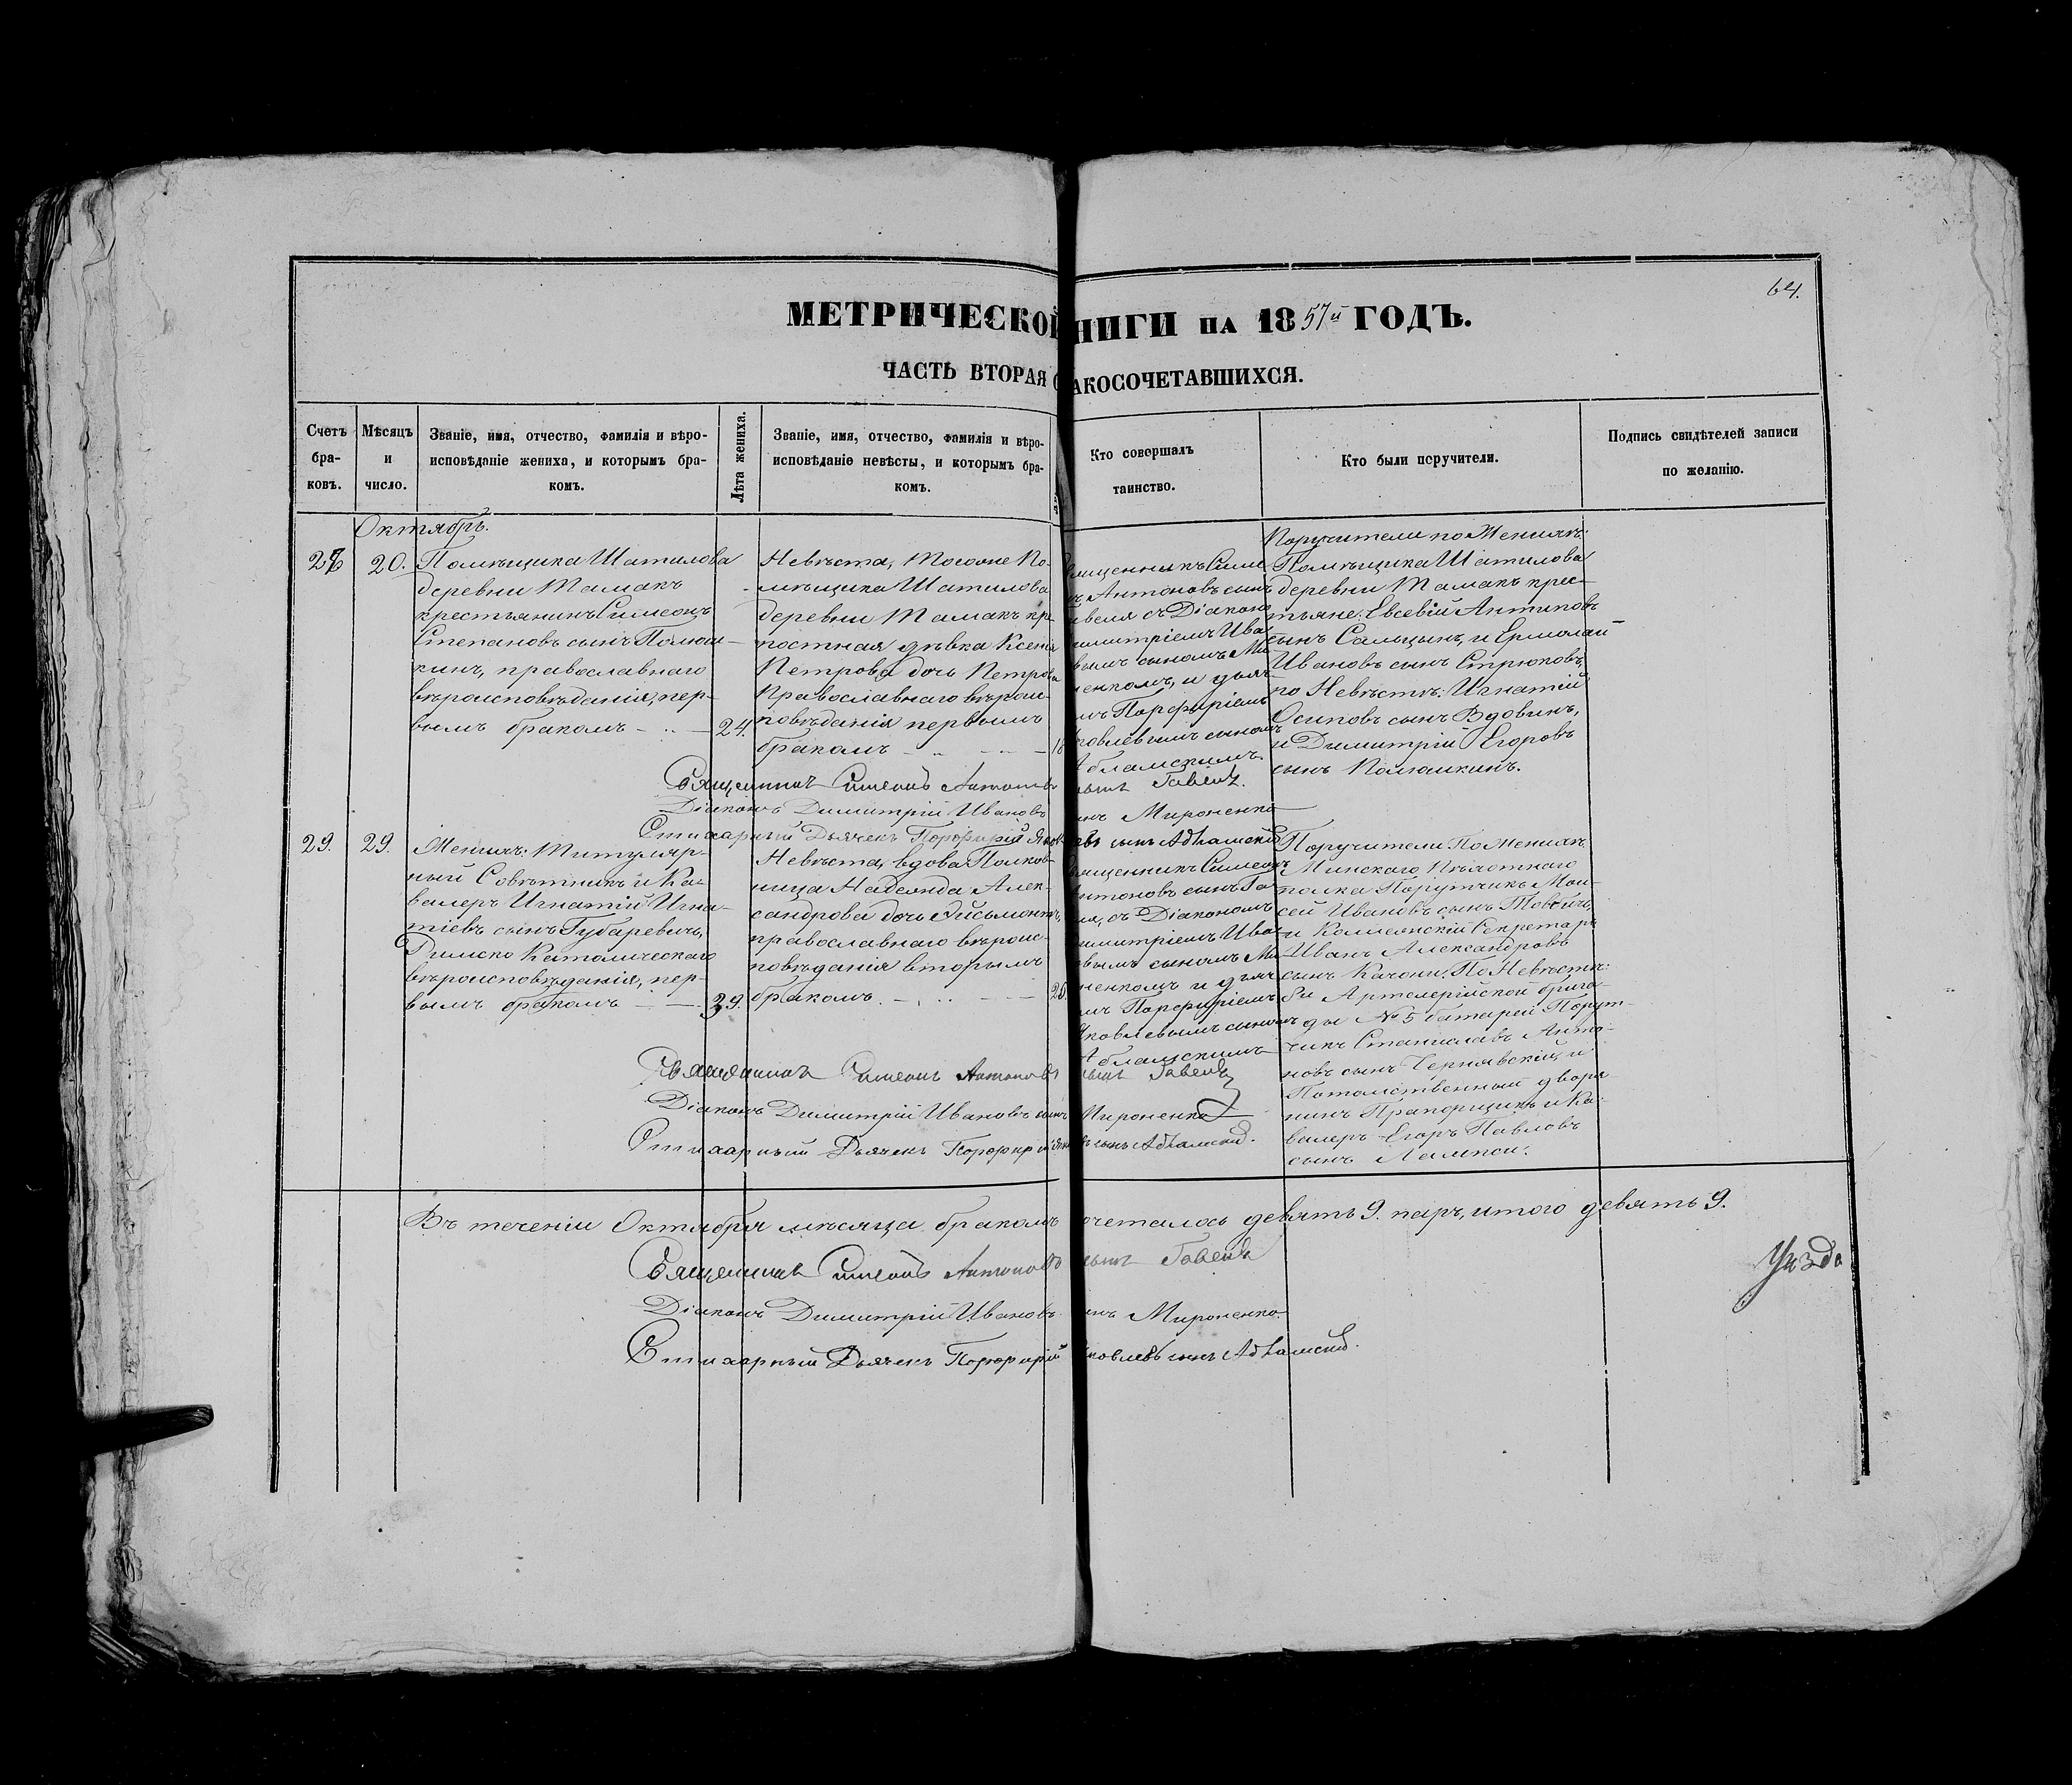 64.
МЕТРИЧЕСКОЙ НИГИ НА 1857й ГОДЪ.
ЧАСТЬ ВТОРАЯ О АКОСОЧЕТАВШИХСЯ.
Счетъ бра-ковъ.
Мѣсяцъ и число.
Званіе, имя, отчество, фамилія и вѣро-
исповѣданіе жениха, и которымъ бра-
комъ.
Лѣта жениха.
Званіе, имя, отчество, фамилія и вѣро-
исповѣданіе невѣсты, и которымъ бра-
комъ.
Кто совершалъ
таинство.
Кто были поручители.
Подпись свидѣтелей записи
по желанію.
Октябрь.
28
20.
Помѣщика Шатилова
деревни Тамакъ
крестьянинъ Симеонъ
Степановъ сынъ Полюш-
кинъ, православнаго
вѣроисповѣданія, пер-
вымъ бракомъ
24.
Невѣста, Тогоже По-
мѣщика Шатилова
деревни Тамакъ кр
постная дѣвка Ксенія
Петрова дочь Петрова
Православнаго вѣроис-
повѣданія первымъ
бракомъ
18
ященникъ Симе
ъ Антоновъ сынъ
авеля съ Діакон
имитріемъ Ива
вымъ сыномъ Ми
ненкомъ, и дьяч-
мъ Порфиріемъ
ковлевымъ сыномъ
Абламскимъ
Поручители по Женихѣ:
Помѣщика Шатилова
деревни Тамакъ крес-
тьяне: Евсевій Антиповъ
сынъ Сальцынъ, и Ермолай
Ивановъ сынъ Стрюковъ,
по Невѣстѣ: Игнатій
Осиповъ сынъ Вдовинъ,
и Димитрій Егоровъ
сынъ Полюшкинъ.
Священникъ Симеонъ Антоновъ сынъ Гавель
Діаконъ Димитрій Ивановъ инъ Мироненко
Стихарный Дьячекъ Порфирій Яковлевъ сынъ Абламскій
29.
29.
Женихъ: Титуляр-
ный Совѣтникъ и Ка-
валеръ Игнатій Игна-
тіевъ сынъ Губаревичъ,
Римско Католическаго
вѣроисповѣданія, пер-
вымъ бракомъ
39.
Невѣста, вдова Полков-
ница Надежда Алек-
сандрова дочь Эйсьмонтъ,
православнаго вѣроис-
повѣданія вторымъ
бракомъ
28.
ященникъ Симеонъ
Антоновъ сынъ Га-
ля, съ Діакономъ
имитріемъ Ива-
вымъ сыномъ Ми
ненкомъ и дьяч
мъ Порфиріемъ
Яковлевымъ сыномъ
Абламскимъ
Поручители: По Женихѣ
Минскаго Пѣхотнаго
полка Порутчикъ Мои-
сей Ивановъ сынъ
и Коллежскій Секретарь
Иванъ Александровъ
сынъ Качони. По Невѣстѣ:
8й Артелерійской брига-
ды № 5 батареи Порут-
чикъ Станиславъ Анто-
новъ сынъ Чернявскій, и
Потомственный дворя
нинъ Прапорщикъ и Ка-
валеръ Егоръ Павловъ
сынъ
Священникъ Симеонъ Антоновъ сынъ Гавель
Діаконъ Димитрій Ивановъ сынъ Мироненко
Стихарный Дьячекъ Порфирій Як ъ сынъ Абламскій.
Въ теченіи Октября мѣсяца бракомъ очеталось девять 9. паръ, итого девять 9.
Священникъ Симеонъ Антоновъ сынъ Гавель
Діаконъ Димитрій Ивановъ инъ Мироненко.
Стихарный Дьячекъ Порфирій Яковлевъ сынъ Абламскій.
Уѣзда